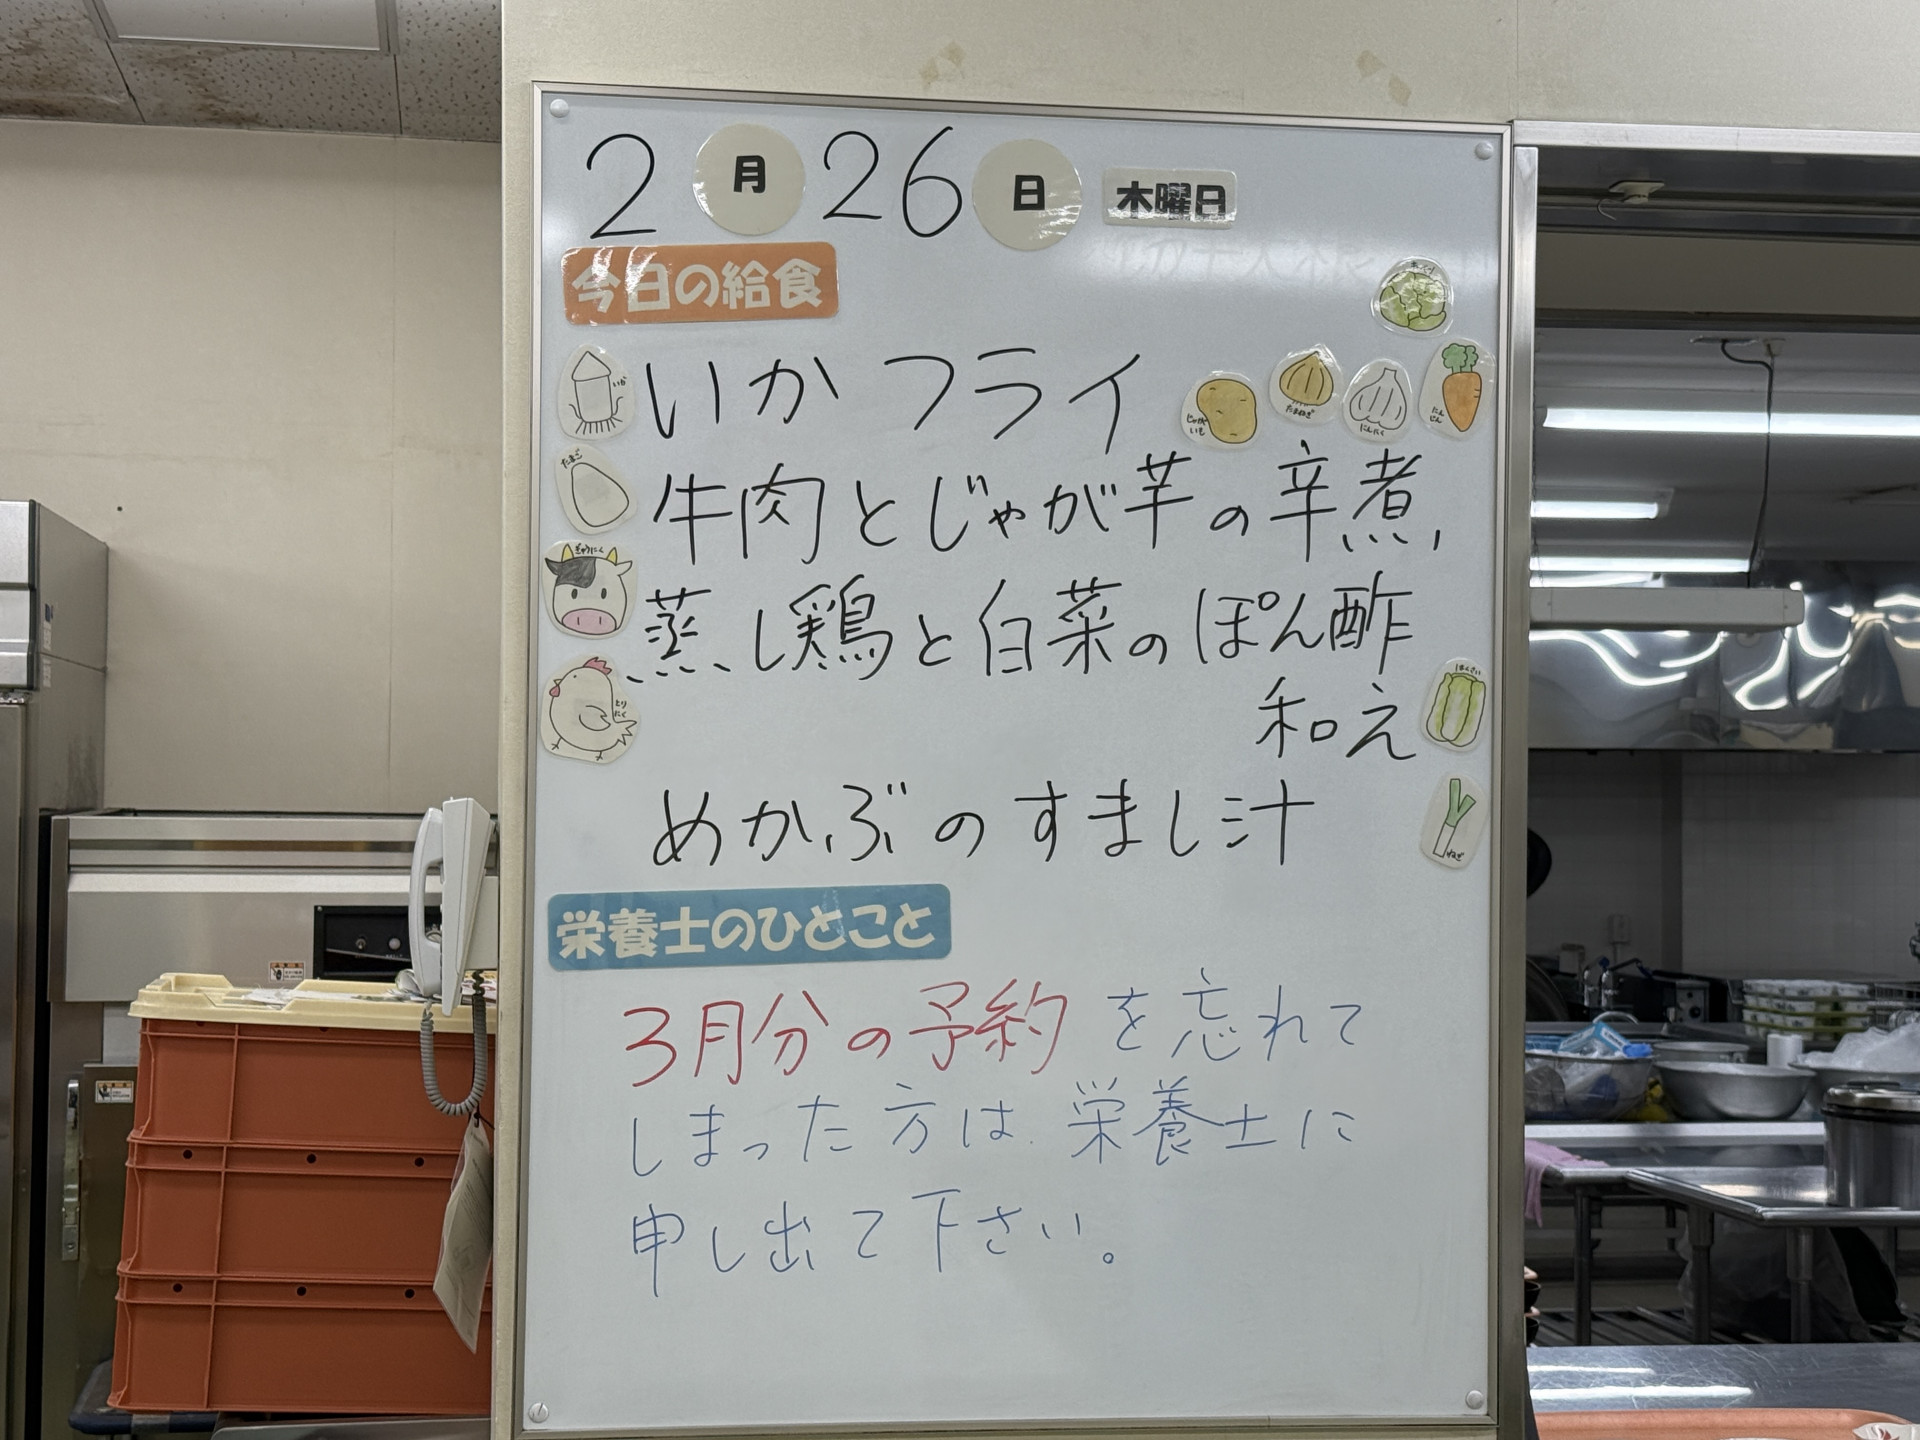 2月26日 木曜日
今日の給食
いか
いかフライ
じゃがいも
たまねぎ
にんにく
にんじん
たまご
牛肉とじゃが芋の辛煮
ぎゅうにく
蒸し鶏と白菜のぽん酢
とりにく
和え
はくさい
めかぶのすまし汁
ねぎ
栄養士のひとこと
3月分の予約を忘れて
しまった方は栄養士に
申し出て下さい。